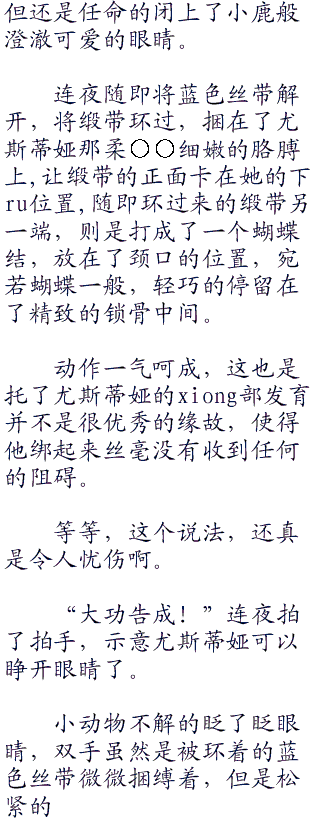 但还是任命的闭上了小鹿般
澄澈可爱的眼睛。
连夜随即将蓝色丝带解
开，将缎带环过，捆在了尤
斯蒂娅那柔○○细嫩的胳膊
上,让缎带的正面卡在她的下
ru位置,随即环过来的缎带另
一端，则是打成了一个蝴蝶
结，放在了颈口的位置，宛
若蝴蝶一般，轻巧的停留在
了精致的锁骨中间。
动作一气呵成，这也是
托了尤斯蒂娅的xiong部发育
并不是很优秀的缘故，使得
他绑起来丝毫没有收到任何
的阻碍。
等等，这个说法，还真
是令人忧伤啊。
“大功告成！”连夜拍
了拍手，示意尤斯蒂娅可以
睁开眼睛了。
小动物不解的眨了眨眼
睛，双手虽然是被环着的蓝
色丝带微微捆缚着，但是松
紧的